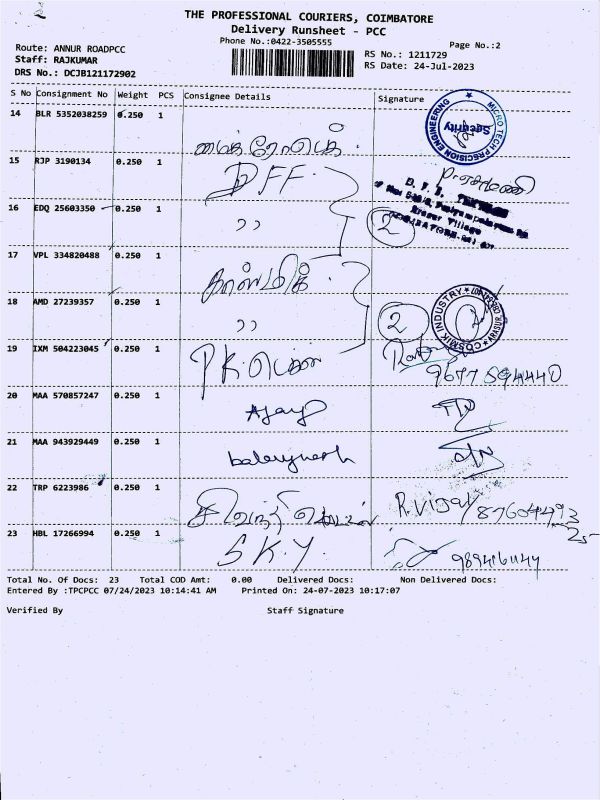 THE PROFESSIONAL COURIERS, COIMBATORE
Delivery Runsheet - PCC
Phone No.:0422-3505555
Page No.:2
Route: ANNUR ROADPCC
RS No.: 1211729
Staff: RAJKUMAR
RS Date: 24-Jul-2023
DRS No.: DCJB121172902
S No Consignment No Weight PCS Consignee Details Signature
14 BLR 5352038259 0.250 1
MICRO TECH PRECISION ENGINEERING
Security
15 RJP 3190134 0.250 1 DFF
16 EDQ 25603350 0.250 1 ,, 2
17 VPL 334820488 0.250 1 காஸ்மிக்
18 AMD 27239357 0.250 1 ,, 2
COSMIK INDUSTRY
19 IXM 504223045 0.250 1 9677 594440
20 MAA 570857247 0.250 1 Ajay
21 MAA 943929449 0.250 1
22 TRP 6223986 0.250 1 R.Vijay
23 HBL 17266994 0.250 1 S.K.Y.
Total No. Of Docs: 23 Total COD Amt: 0.00 Delivered Docs: Non Delivered Docs:
Entered By :TPCPCC 07/24/2023 10:14:41 AM Printed On: 24-07-2023 10:17:07
Verified By Staff Signature